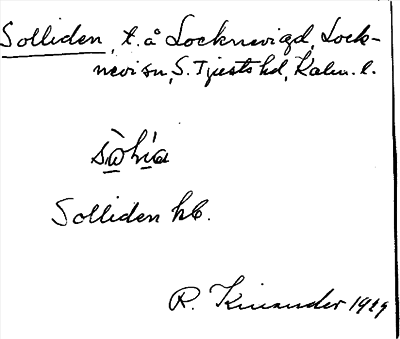 Solliden, t. å Locknevi gd, Lock-
nevi sn, S. Tjusts hd, Kalm. l.
Solliden kb.
R. Kinander 1929